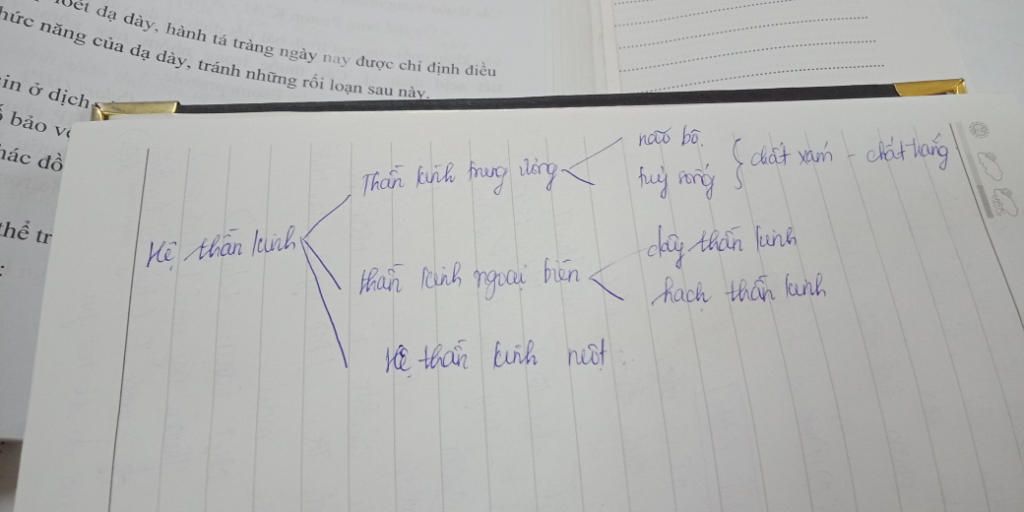 loét dạ dày, hành tá tràng ngày nay được chỉ định điều
hức năng của dạ dày, tránh những rối loạn sau này.
in ở dịch
bảo vệ
hác đồ
thể tr
Hệ thần kinh
Thần kinh trung ương
não bộ.
tuỷ sống
chất xám - chất trắng
thần kinh ngoại biên
dây thần kinh
hạch thần kinh
Hệ thần kinh ruột